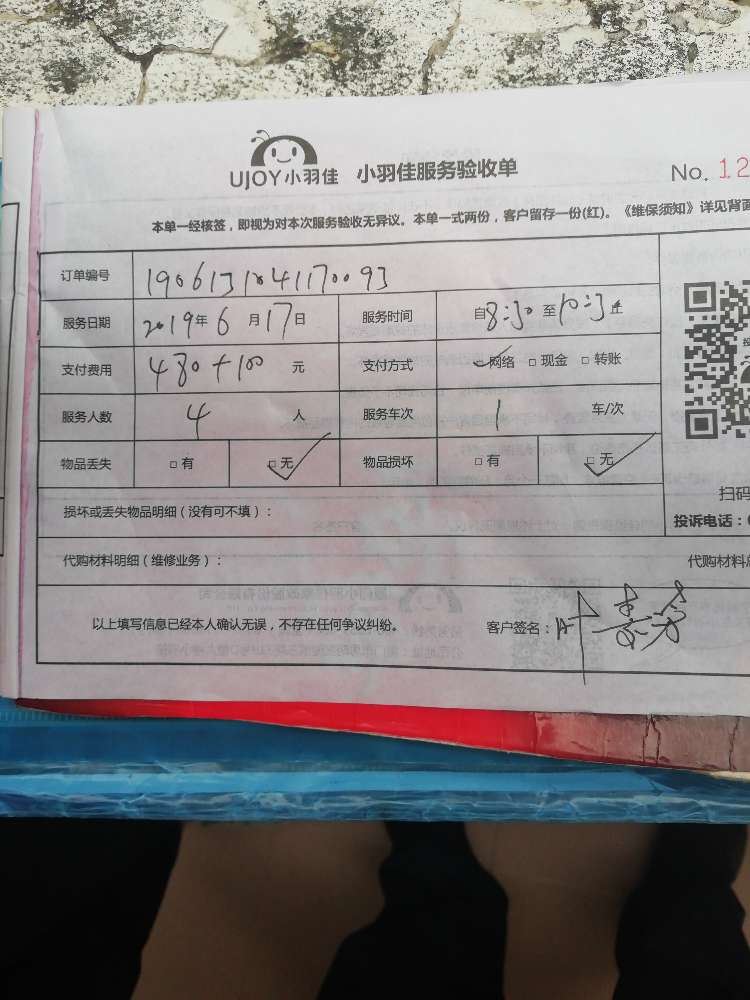 UJOY小羽佳 小羽佳服务验收单
No. 12
本单一经核签，即视为对本次服务验收无异议。本单一式两份，客户留存一份(红)。《维保须知》详见背面
订单编号 1906131041170093
服务日期 2019年6月17日 服务时间 自8:30至10:30止
支付费用 480+100 元 支付方式 网络 现金 转账
服务人数 4 人 服务车次 1 车/次
物品丢失 有 无 物品损坏 有 无
扫码
损坏或丢失物品明细（没有可不填）：
投诉电话：
代购材料明细（维修业务）：
代购材料
以上填写信息已经本人确认无误，不存在任何争议纠纷。
客户签名：